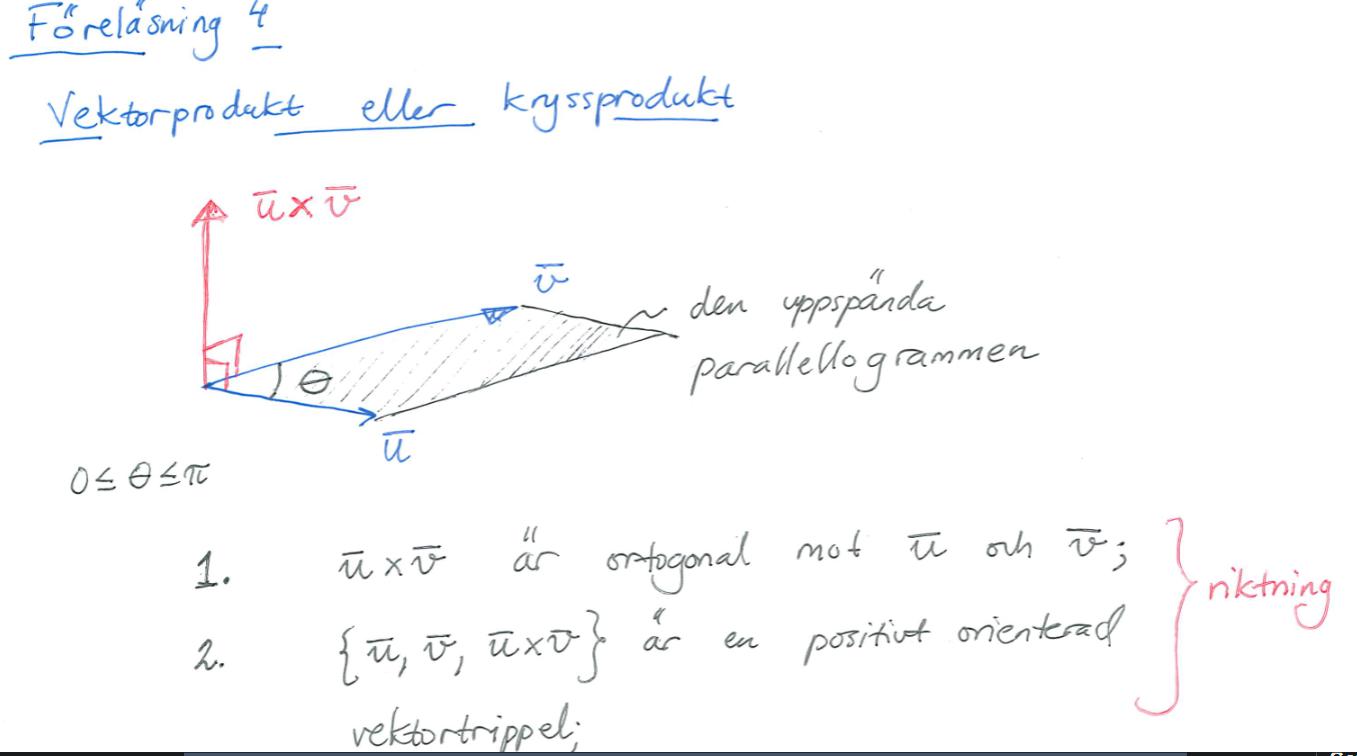 Föreläsning 4
Vektorprodukt eller kryssprodukt
ū×v̄
v̄
den uppspända
parallellogrammen
θ
ū
0≤θ≤π
1. ū×v̄ är ortogonal mot ū och v̄;
riktning
2. {ū, v̄, ū×v̄} är en positivt orienterad
vektortrippel;